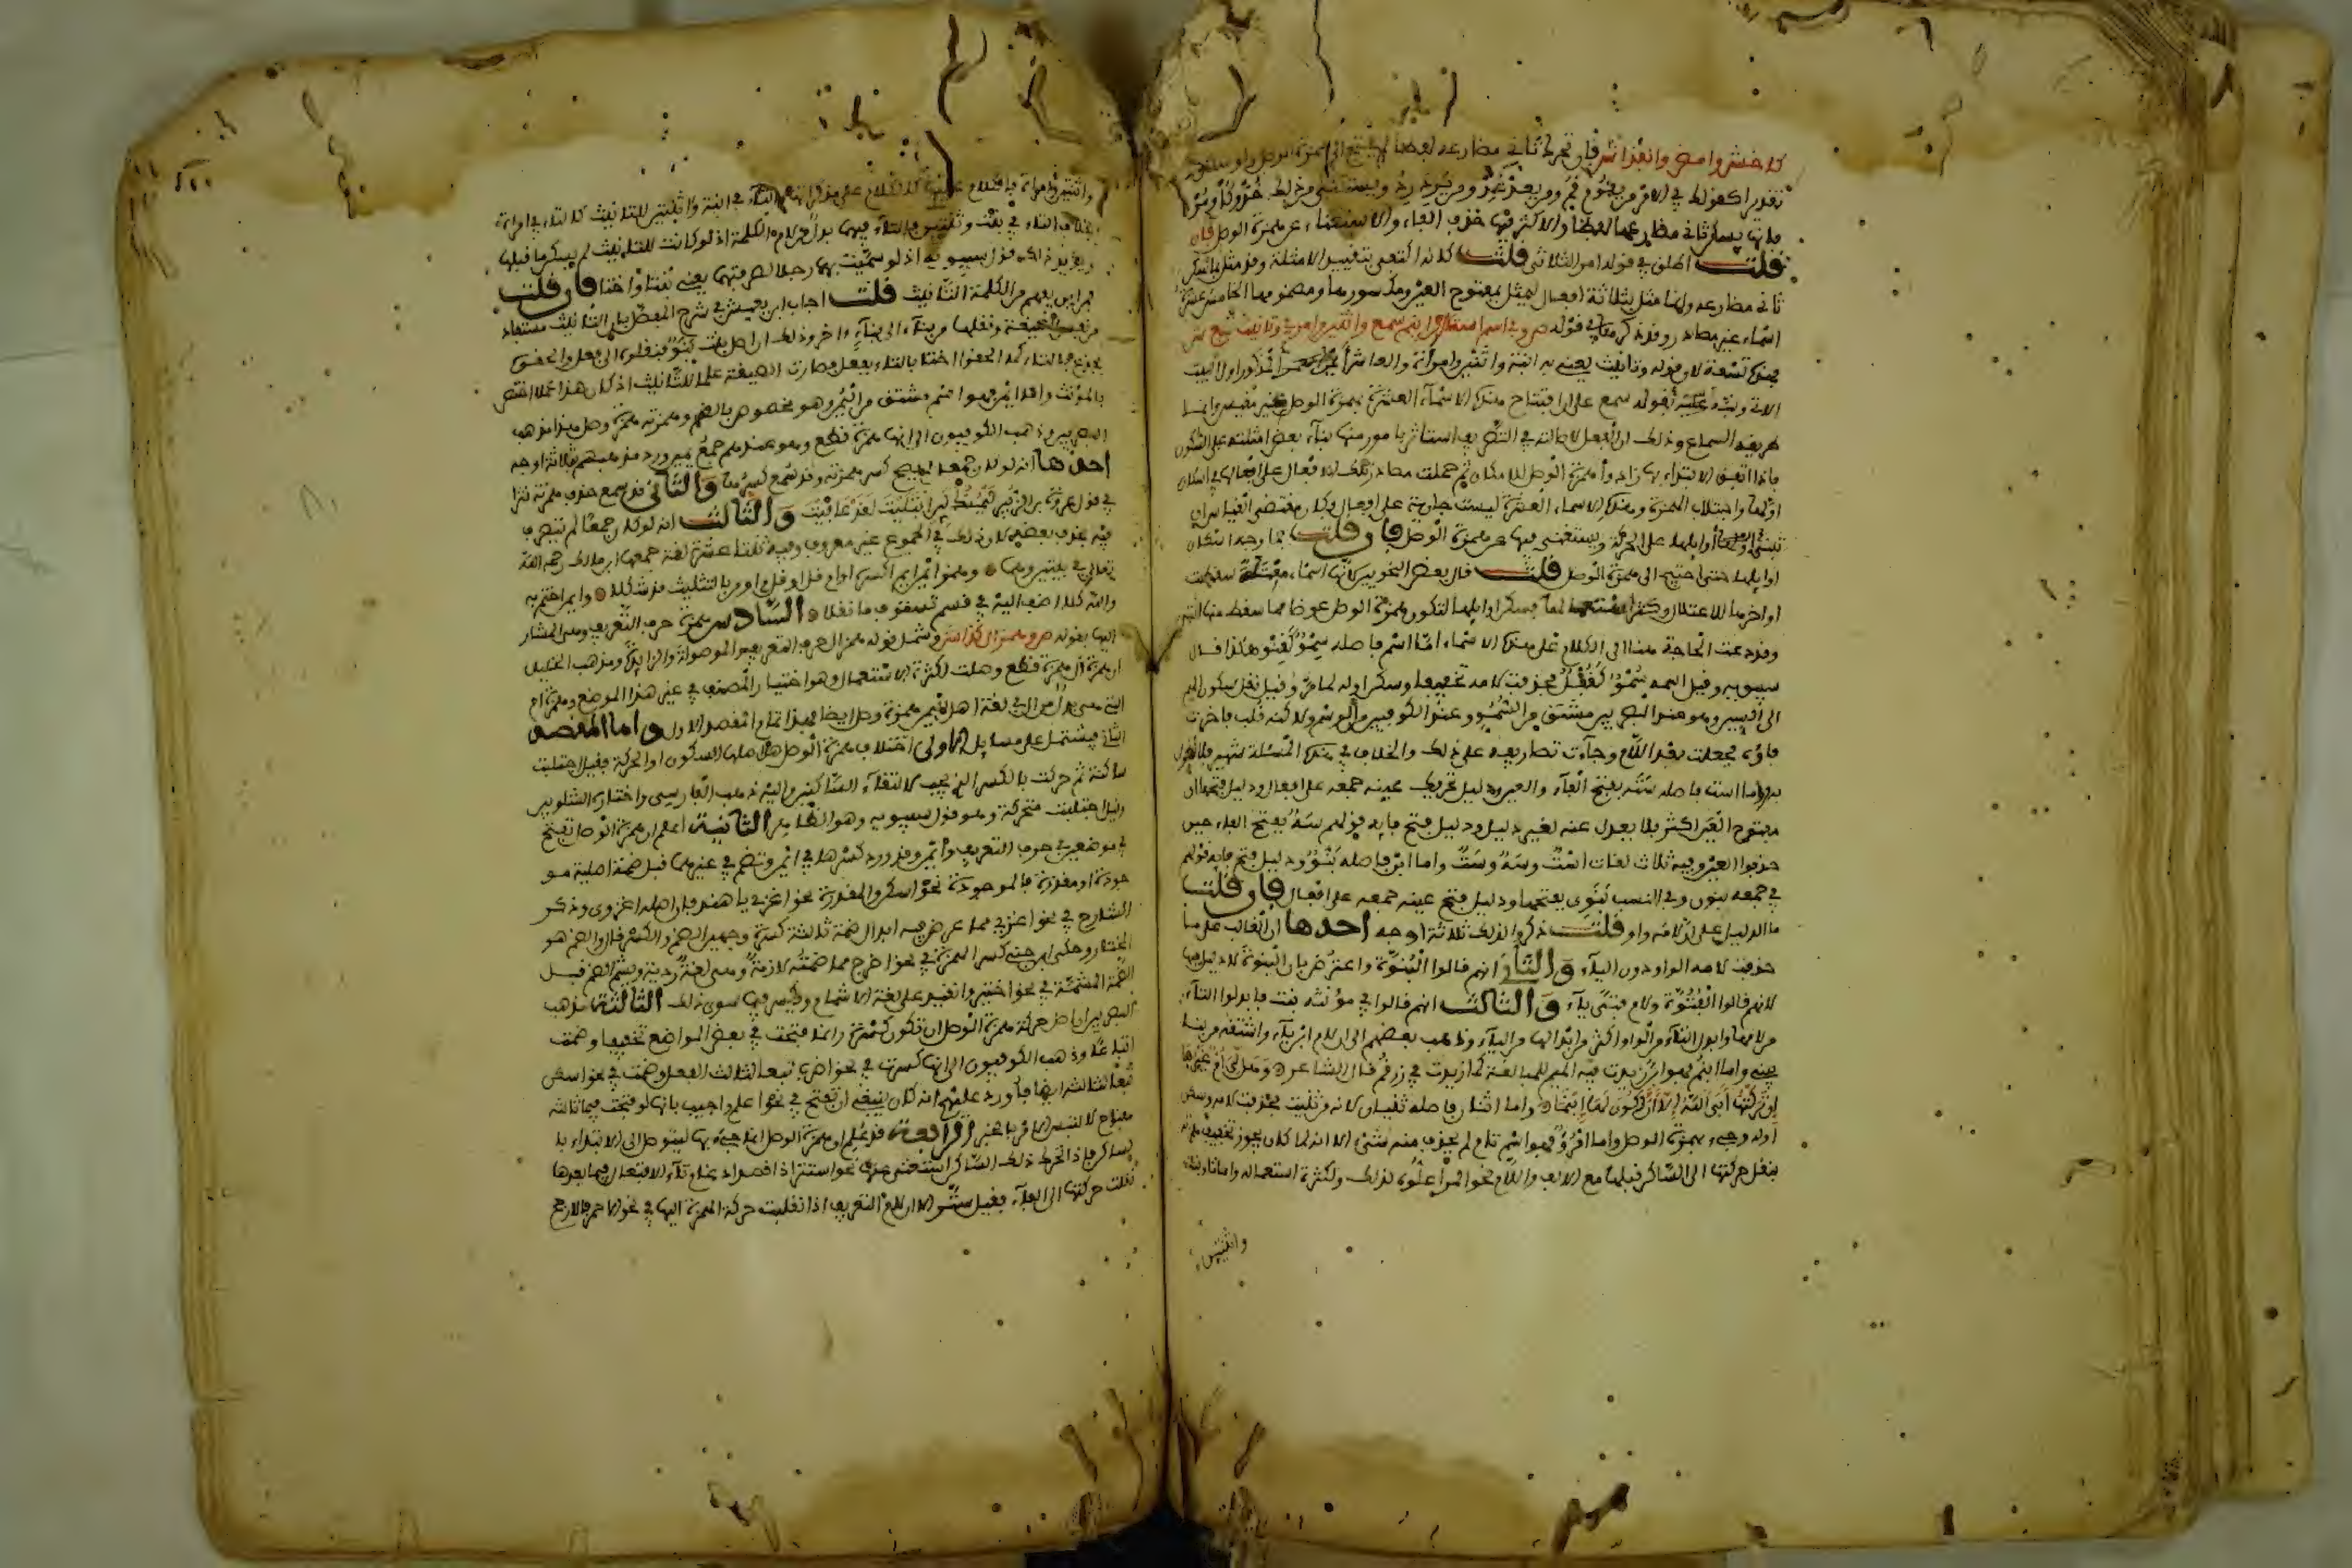 كاخش وامض وانفذا ش فإن تحرك ثاني مضارعه لفظا لم يحتج الى همزة الوصل ولو سكن
تقديرا كقولك في الامر من يقوم قم ومن يعد عد ومن يرد رد ويستثنى من ذلك خذ وكل ومر
فانها يسكن ثاني مضارعها لفظا والاكثر فيها حذف الفاء والاستغناء عن همزة الوصل فإن
قلت اطلق في قوله امر الثلاثي قلت كانه اكتفى بتقييد الامثلة وقد مثل بما سكن
ثاني مضارعه وانما مثل بثلاثة افعال ليمثل بمفتوح العين ومكسورها ومضمومها الخامس عشرة
اسماء غير مصادر وقد ذكرها في قوله ص وفي اسم است ابن ابنم سمع واثنين وامرئ وتانيث تبع ش
فهذه تسعة لان قوله وتانيث يعني به ابنة واثنتين وامراة والعاشر ايمن
الاتي ونبه بقوله سمع على ان افتتاح هذه الاسماء العشرة بهمزة الوصل غير مقيس وانما
طريقه السماع وذلك ان الفعل لاصالته في التصريف استاثر بامور منها بناء بعض امثلته على السكون
فاذا اتفق الابتداء بها زادوا همزة الوصل للامكان ثم حملت مصادر تلك الافعال على افعالها في اسكان
اولها واجتلاب الهمزة وهذه الاسماء العشرة ليست جارية على افعال وكان مقتضى القياس ان
تبنى اوايلها على الحركة ويستغنى بها عن همزة الوصل فإن قلت فما وجه اسكان
اوايلها حتى احتيج الى همزة الوصل قلت قال بعض النحويين كانها اسماء معتلة سقطت
اواخرها للاعتلال وكثر استعمالها فسكن اوايلها لتكون همزة الوصل عوضا مما سقط منها انتهى
وقد دعت الحاجة هنا الى الكلام على هذه الاسماء اما اسم فاصله سمو كقنو هكذا قال
سيبويه وقيل اسمه سمو كقفل فحذفت لامه تخفيفا وسكن اوله لما مر وقيل نقل سكون الميم
الى السين وهو عند البصريين مشتق من السمو وعند الكوفيين من الوسم ولاكنه قلب فاخرت
فاؤه فجعلت بعد اللام وجاءت تصاريفه على ذلك والخلاف في هذه المسئلة شهير فلا نطول
به واما است فاصله سته بفتح الفاء والعين دليل تحريك عينه جمعه على افعال ودليل فتحها ان
مفتوح العين اكثر فلا يعدل عنه لغير دليل ودليل فتح فايه قولهم سه بفتح الفاء حين
حذفوا العين وفيه ثلاث لغات است وسه وست واما ابن فاصله بنو ودليل فتح فايه قولهم
في جمعه بنون وفي النسب بنوي بفتحها ودليل فتح عينه جمعه على افعال فإن قلت
ما الدليل على ان لامه واو قلت ذكروا لذلك ثلاثة اوجه احدها ان الغالب على ما
حذفت لامه الواو دون الياء والثاني انهم قالوا البنوة واعترض بان البنوة لا دليل فيها
لانهم قالوا الفتوة ولام فتى ياء والثالث انهم قالوا في مؤنثه بنت فابدلوا التاء
من لامها وابدال التاء من الواو اكثر من ابدالها من الياء وذهب بعضهم الى ان لام ابن ياء واشتقه من بنى
يبني واما ابنم فهو ابن زيدت فيه الميم للمبالغة كما زيدت في زرقم قال الشاعر وهل لي ام غيرها
ان تركتها ابى الله الا ان اكون لها ابنما واما اثنان فاصله ثنيان لانه من ثنيت فحذفت لامه وسكن
اوله وجيء بهمزة الوصل واما امرؤ فهو اسم تام لم يحذف منه شيء الا انه لما كان يجوز تخفيف همزته
بنقل حركتها الى الساكن قبلها مع الالف واللام نحو المرء اعلوه لذلك ولكثرة استعماله واما تانيثه
واثنتين
واثنتين وامراة فالكلام عليها كالكلام على مذكراتها والتاء في ابنة واثنتين للتانيث كالتاء في امراة
بخلاف التاء في بنت وثنتين فالتاء فيهما بدل من لام الكلمة اذ لو كانت للتانيث لم يسكن ما قبلها
ويؤيد ذلك قول سيبويه اذ لو سميت بهما رجلا لصرفتهما يعني بنتا واختا فإن قلت
فمن اين يفهم من الكلمة التانيث قلت اجاب ابن يعيش في شرح المفصل بان التانيث مستفاد
من نفس الصيغة ونقلها من بناء الى بناء اخر وذلك ان اصل بنت بنو فنقلوه الى فعل والحقوه
بجذع بالتاء كما الحقوا اختا بالتاء بقفل فصارت الصيغة علما للتانيث اذ كان هذا عملا اختص
بالمؤنث واما ايمن فهو اسم مشتق من اليمن وهو مخصوص بالقسم وهمزته همزة وصل هذا مذهب
البصريين وذهب الكوفيون الى انها همزة قطع وهو عندهم جمع يمين ورد مذهبهم بثلاثة اوجه
احدها انه لو كان جمعا لم يصح كسر همزته وقد سمع كسرها والثاني قد سمع حذف همزته نثرا
في قول عروة بن الزبير ليمنك لئن ابتليت لقد عافيت والثالث انه لو كان جمعا لم يتصرف
فيه بحذف بعضه لان ذلك في الجموع غير معروف وفيه ثلتا عشرة لغة جمعها ابن مالك رحمه الله
تعالى في بيتين وهما وهمز ايم ايمن فافتح واكسر او ام قل او قل م او من بالتثليث قد شكلا وايمن اختم به
والله كلا اضف اليه في قسم تستوف ما نقلا السادس همزة حرف التعريف وهي المشار
اليها بقوله ص وهمز ال كذا ش وشمل قوله همز ال حرف التعريف والموصولة والزايدة ومذهب الخليل
ان همزة ال همزة قطع وصلت لكثرة الاستعمال وهو اختيار المصنف في غير هذا الموضع وهمزة ام
التي هي بدل من ال في لغة اهل اليمن همزة وصل ايضا فهذا تمام الفصل الاول واما الفصل
الثاني فيشتمل على مسايل الاولى اختلف في همزة الوصل هل اصلها السكون او الحركة فقيل اجتلبت
ساكنة ثم حركت بالكسر الذي يجب لالتقاء الساكنين واليه ذهب الفارسي واختاره الشلوبين
وقيل اجتلبت متحركة وهو قول سيبويه وهو الظاهر الثانية اعلم ان همزة الوصل تفتح
في موضعين في حرف التعريف وايمن وقد ورد كسرها في ايمن وتضم في غيرهما قبل ضمة اصلية مو
جودة او مقدرة فالموجودة نحو اسكن والمقدرة نحو اغزي يا هند فان اصله اغزوي وذكر
الشارح في نحو اغزي مما عرض فيه ابدال ضمة ثالثه كسرة وجهين الضم والكسر قال والضم هو
المختار وحكى ابن جني كسر الهمزة في نحو اخرج مما ضمته لازمة وهي لغة ردية ويشم الضم قبل
الضمة المشمة في نحو اختير وانقيد على لغة الاشمام وتكسر فيما سوى ذلك الثالثة مذهب
البصريين ان اصل حركة همزة الوصل ان تكون كسرة وانما فتحت في بعض المواضع تخفيفا وضمت
اتباعا وذهب الكوفيون الى انها كسرت في نحو اضرب تبعا لثالث الفعل وضمت في نحو اسكن
تبعا لثالثه ايضا فاورد عليهم انه كان ينبغي ان تفتح في نحو اعلم واجيب بانها لو فتحت فيما ثالثه
مفتوح لالتبس الامر بالخبر الرابعة قد علم ان همزة الوصل انما جيء بها ليتوصل الى الابتداء بالساكن
فاذا تحرك ذلك الساكن استغني عنها نحو استتر اذا قصد ادغام تاء الافتعال فيما بعدها
نقلت حركتها الى الفاء فقيل ستر الا ان لام التعريف اذا نقلت حركة الهمزة اليها في نحو الاحمر فالارجح